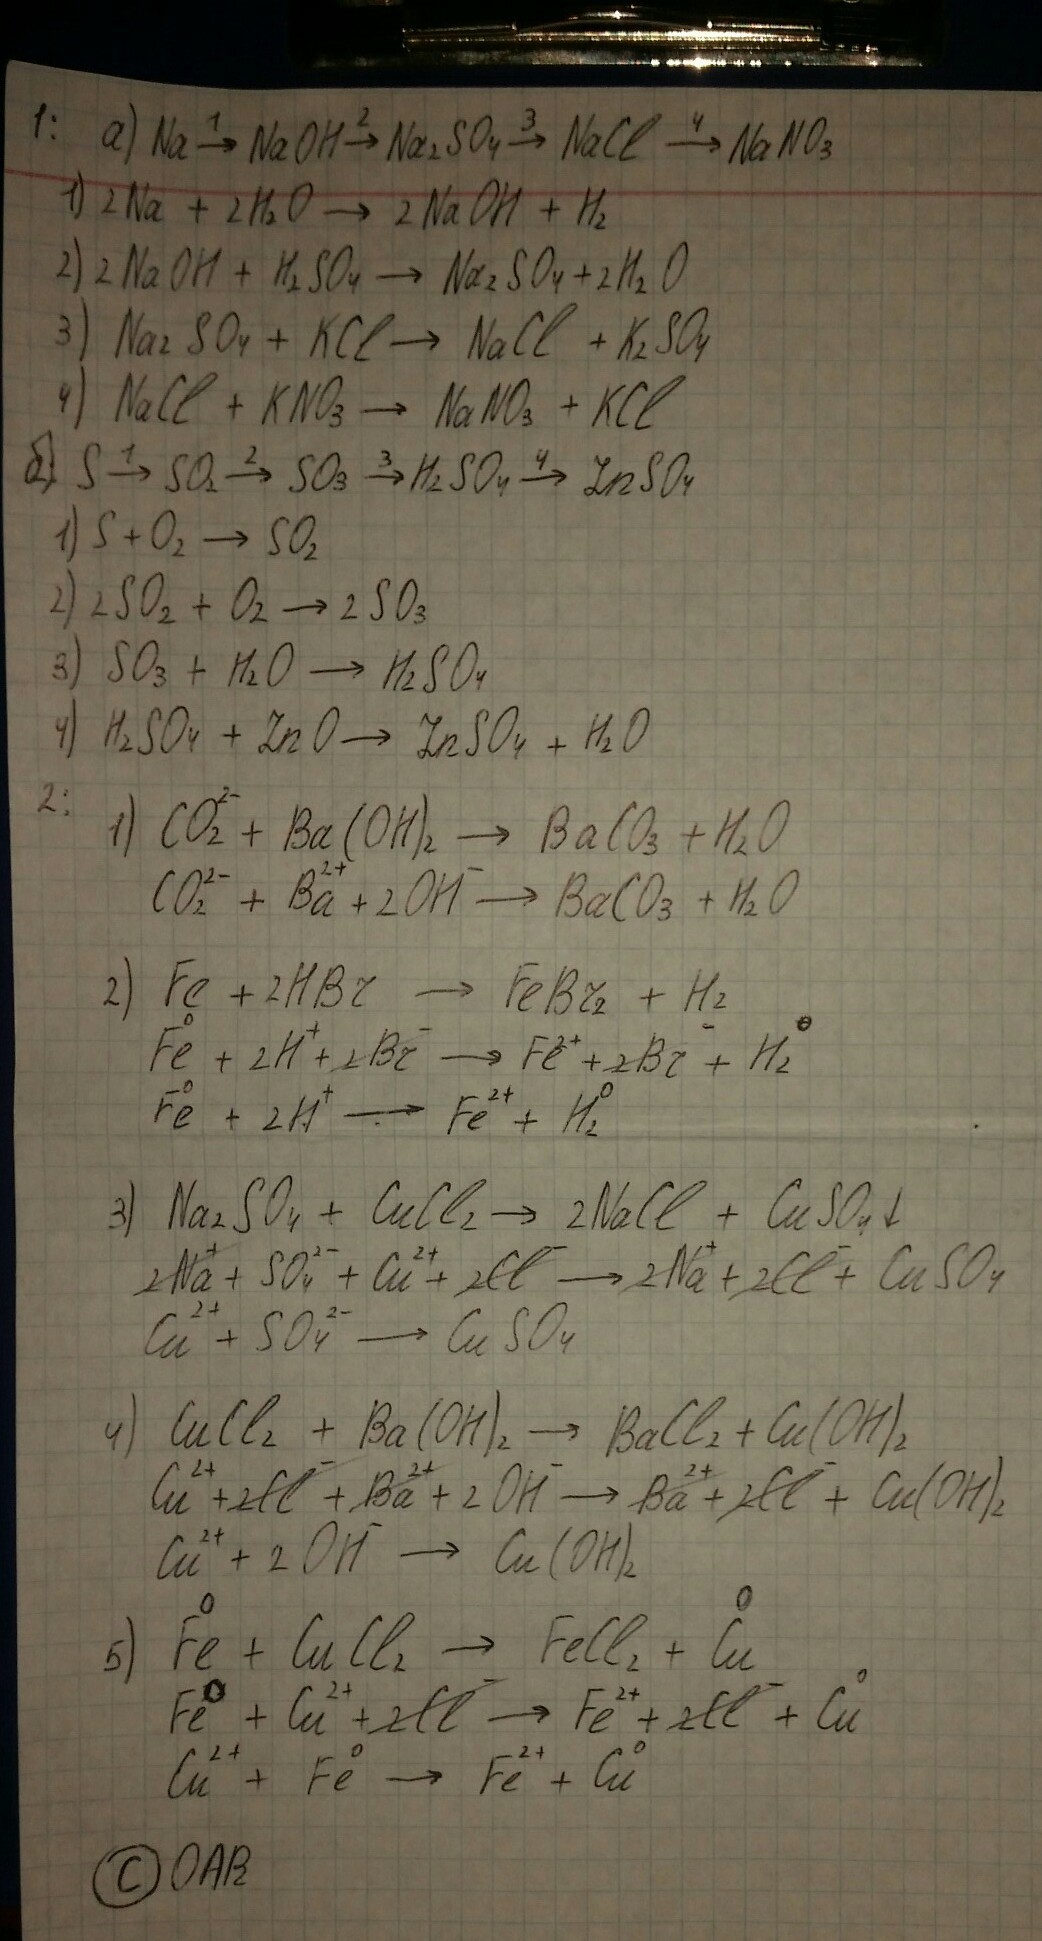 1: а) Na ¹→ NaOH ²→ Na₂SO₄ ³→ NaCl ⁴→ NaNO₃
1) 2Na + 2H₂O → 2NaOH + H₂
2) 2NaOH + H₂SO₄ → Na₂SO₄ + 2H₂O
3) Na₂SO₄ + KCl → NaCl + K₂SO₄
4) NaCl + KNO₃ → NaNO₃ + KCl
б) S ¹→ SO₂ ²→ SO₃ ³→ H₂SO₄ ⁴→ ZnSO₄
1) S + O₂ → SO₂
2) 2SO₂ + O₂ → 2SO₃
3) SO₃ + H₂O → H₂SO₄
4) H₂SO₄ + ZnO → ZnSO₄ + H₂O
2: 1) CO₂²⁻ + Ba(OH)₂ → BaCO₃ + H₂O
CO₂²⁻ + Ba²⁺ + 2OH⁻ → BaCO₃ + H₂O
2) Fe + 2HBr → FeBr₂ + H₂
Fe⁰ + 2H⁺ + 2Br⁻ → Fe²⁺ + 2Br⁻ + H₂⁰
Fe⁰ + 2H⁺ → Fe²⁺ + H₂⁰
3) Na₂SO₄ + CuCl₂ → 2NaCl + CuSO₄↓
2Na⁺ + SO₄²⁻ + Cu²⁺ + 2Cl⁻ → 2Na⁺ + 2Cl⁻ + CuSO₄
Cu²⁺ + SO₄²⁻ → CuSO₄
4) CuCl₂ + Ba(OH)₂ → BaCl₂ + Cu(OH)₂
Cu²⁺ + 2Cl⁻ + Ba²⁺ + 2OH⁻ → Ba²⁺ + 2Cl⁻ + Cu(OH)₂
Cu²⁺ + 2OH⁻ → Cu(OH)₂
5) Fe⁰ + CuCl₂ → FeCl₂ + Cu⁰
Fe⁰ + Cu²⁺ + 2Cl⁻ → Fe²⁺ + 2Cl⁻ + Cu⁰
Cu²⁺ + Fe⁰ → Fe²⁺ + Cu⁰
© OAR